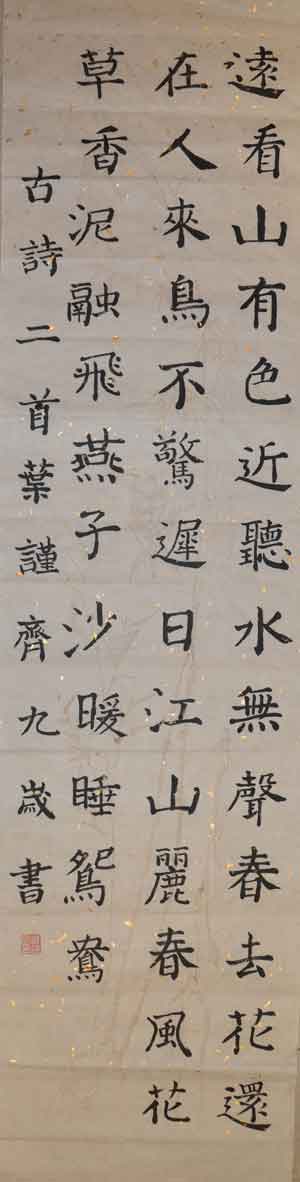 遠看山有色近聽水無聲春去花還
在人來鳥不驚遲日江山麗春風花
草香泥融飛燕子沙暖睡鴛鴦
古詩二首葉謹齊九歲書